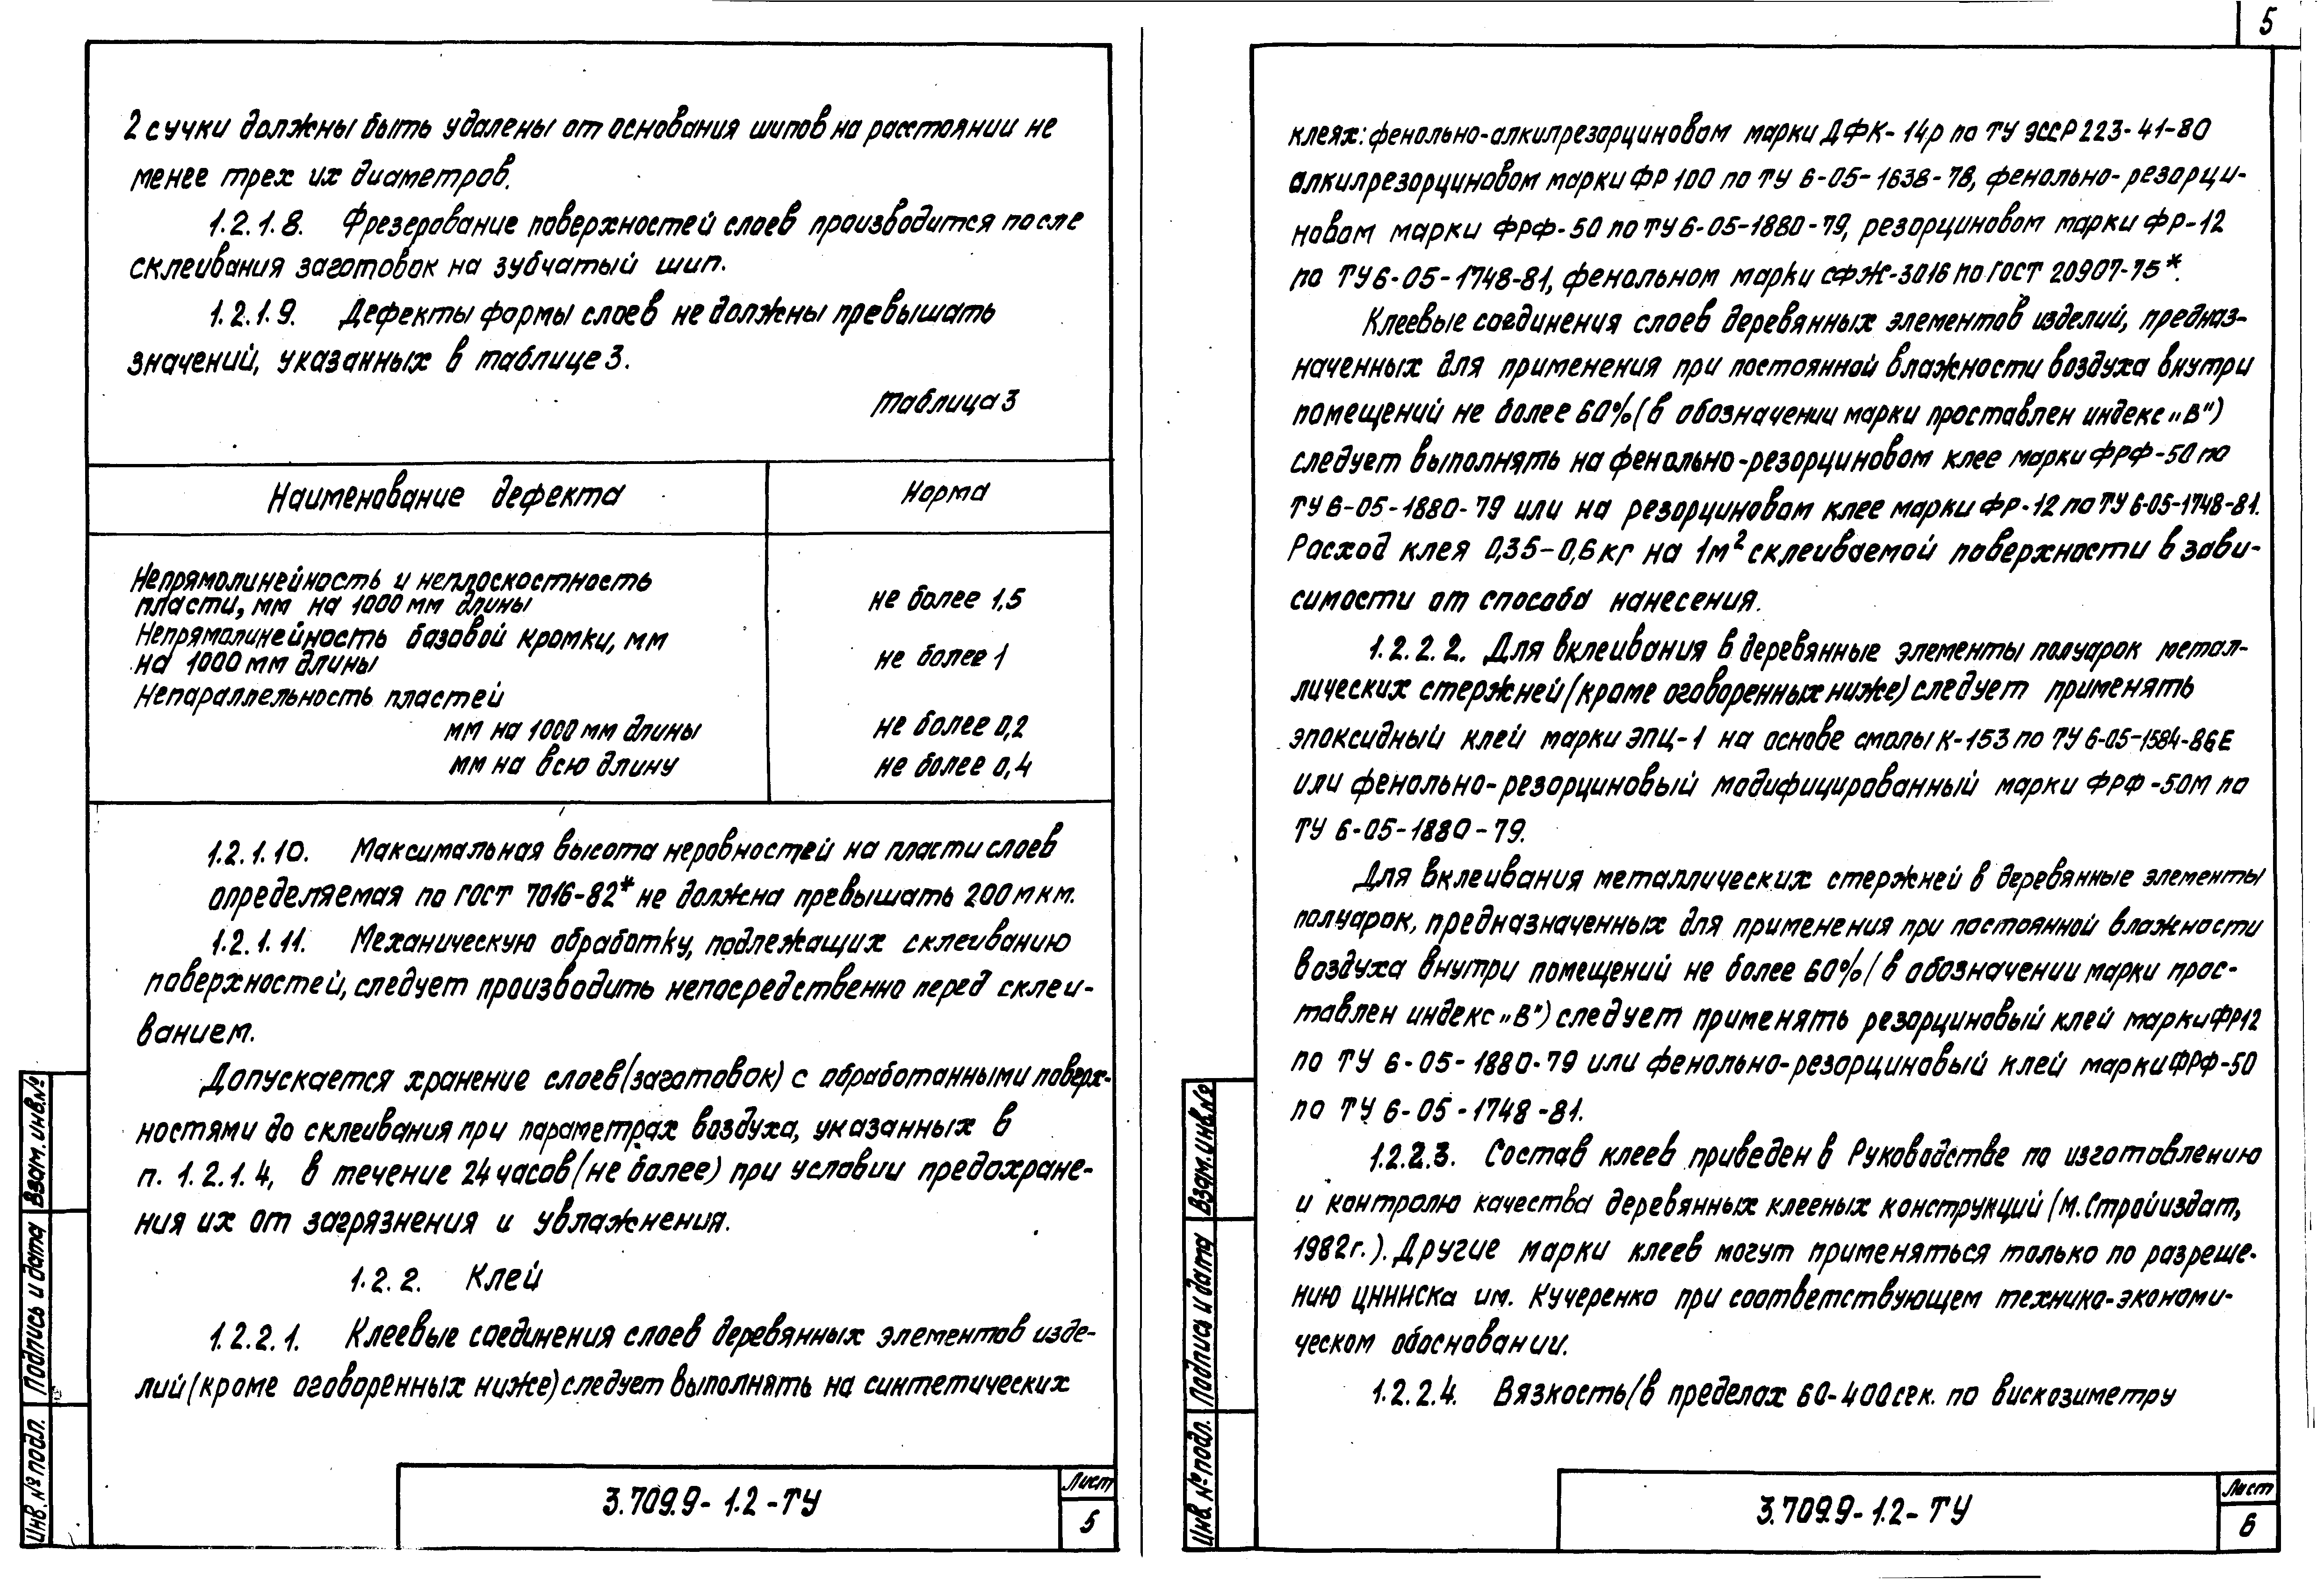 2 сучки должны быть удалены от основания шипов на расстоянии не
менее трех их диаметров.
1.2.1.8. Фрезерование поверхностей слоев производится после
склеивания заготовок на зубчатый шип.
1.2.1.9. Дефекты формы слоев не должны превышать
значений, указанных в таблице 3.
Таблица 3
Наименование дефекта Норма
Непрямолинейность и неплоскостность
пласти, мм на 1000 мм длины не более 1,5
Непрямолинейность базовой кромки, мм
на 1000 мм длины не более 1
Непараллельность пластей
мм на 1000 мм длины не более 0,2
мм на всю длину не более 0,4
1.2.1.10. Максимальная высота неровностей на пласти слоев
определяемая по ГОСТ 7016-82* не должна превышать 200 мкм.
1.2.1.11. Механическую обработку, подлежащих склеиванию
поверхностей, следует производить непосредственно перед склеи-
ванием.
Допускается хранение слоев (заготовок) с обработанными поверх-
ностями до склеивания при параметрах воздуха, указанных в
п. 1.2.1.4, в течение 24 часов (не более) при условии предохране-
ния их от загрязнения и увлажнения.
1.2.2. Клей
1.2.2.1. Клеевые соединения слоев деревянных элементов изде-
лий (кроме оговоренных ниже) следует выполнять на синтетических
Инв. № подл. Подпись и дата Взам. инв. №
3.709.9-1.2-ТУ
Лист
5
5
клеях: фенольно-алкилрезорциновом марки ДФК-14р по ТУ ЭССР 223-41-80
алкилрезорциновом марки ФР 100 по ТУ 6-05-1638-78, фенольно-резорци-
новом марки ФРФ-50 по ТУ 6-05-1880-79, резорциновом марки ФР-12
по ТУ 6-05-1748-81, фенольном марки СФЖ-3016 по ГОСТ 20907-75*.
Клеевые соединения слоев деревянных элементов изделий, предназ-
наченных для применения при постоянной влажности воздуха внутри
помещений не более 60% (в обозначении марки проставлен индекс „В")
следует выполнять на фенольно-резорциновом клее марки ФРФ-50 по
ТУ 6-05-1880-79 или на резорциновом клее марки ФР-12 по ТУ 6-05-1748-81.
Расход клея 0,35-0,6 кг на 1м² склеиваемой поверхности в зави-
симости от способа нанесения.
1.2.2.2. Для вклеивания в деревянные элементы полуарок метал-
лических стержней (кроме оговоренных ниже) следует применять
эпоксидный клей марки ЭПЦ-1 на основе смолы К-153 по ТУ 6-05-1584-86Е
или фенольно-резорциновый модифицированный марки ФРФ-50М по
ТУ 6-05-1880-79.
Для вклеивания металлических стержней в деревянные элементы
полуарок, предназначенных для применения при постоянной влажности
воздуха внутри помещений не более 60% (в обозначении марки прос-
тавлен индекс „В") следует применять резорциновый клей марки ФР12
по ТУ 6-05-1880-79 или фенольно-резорциновый клей марки ФРФ-50
по ТУ 6-05-1748-81.
1.2.2.3. Состав клеев приведен в Руководстве по изготовлению
и контролю качества деревянных клееных конструкций (М. Стройиздат,
1982г.). Другие марки клеев могут применяться только по разреше-
нию ЦНИИСКа им. Кучеренко при соответствующем технико-экономи-
ческом обосновании.
1.2.2.4. Вязкость (в пределах 60-400 сек. по вискозиметру
Инв. № подл. Подпись и дата Взам. инв. №
3.709.9-1.2-ТУ
Лист
6